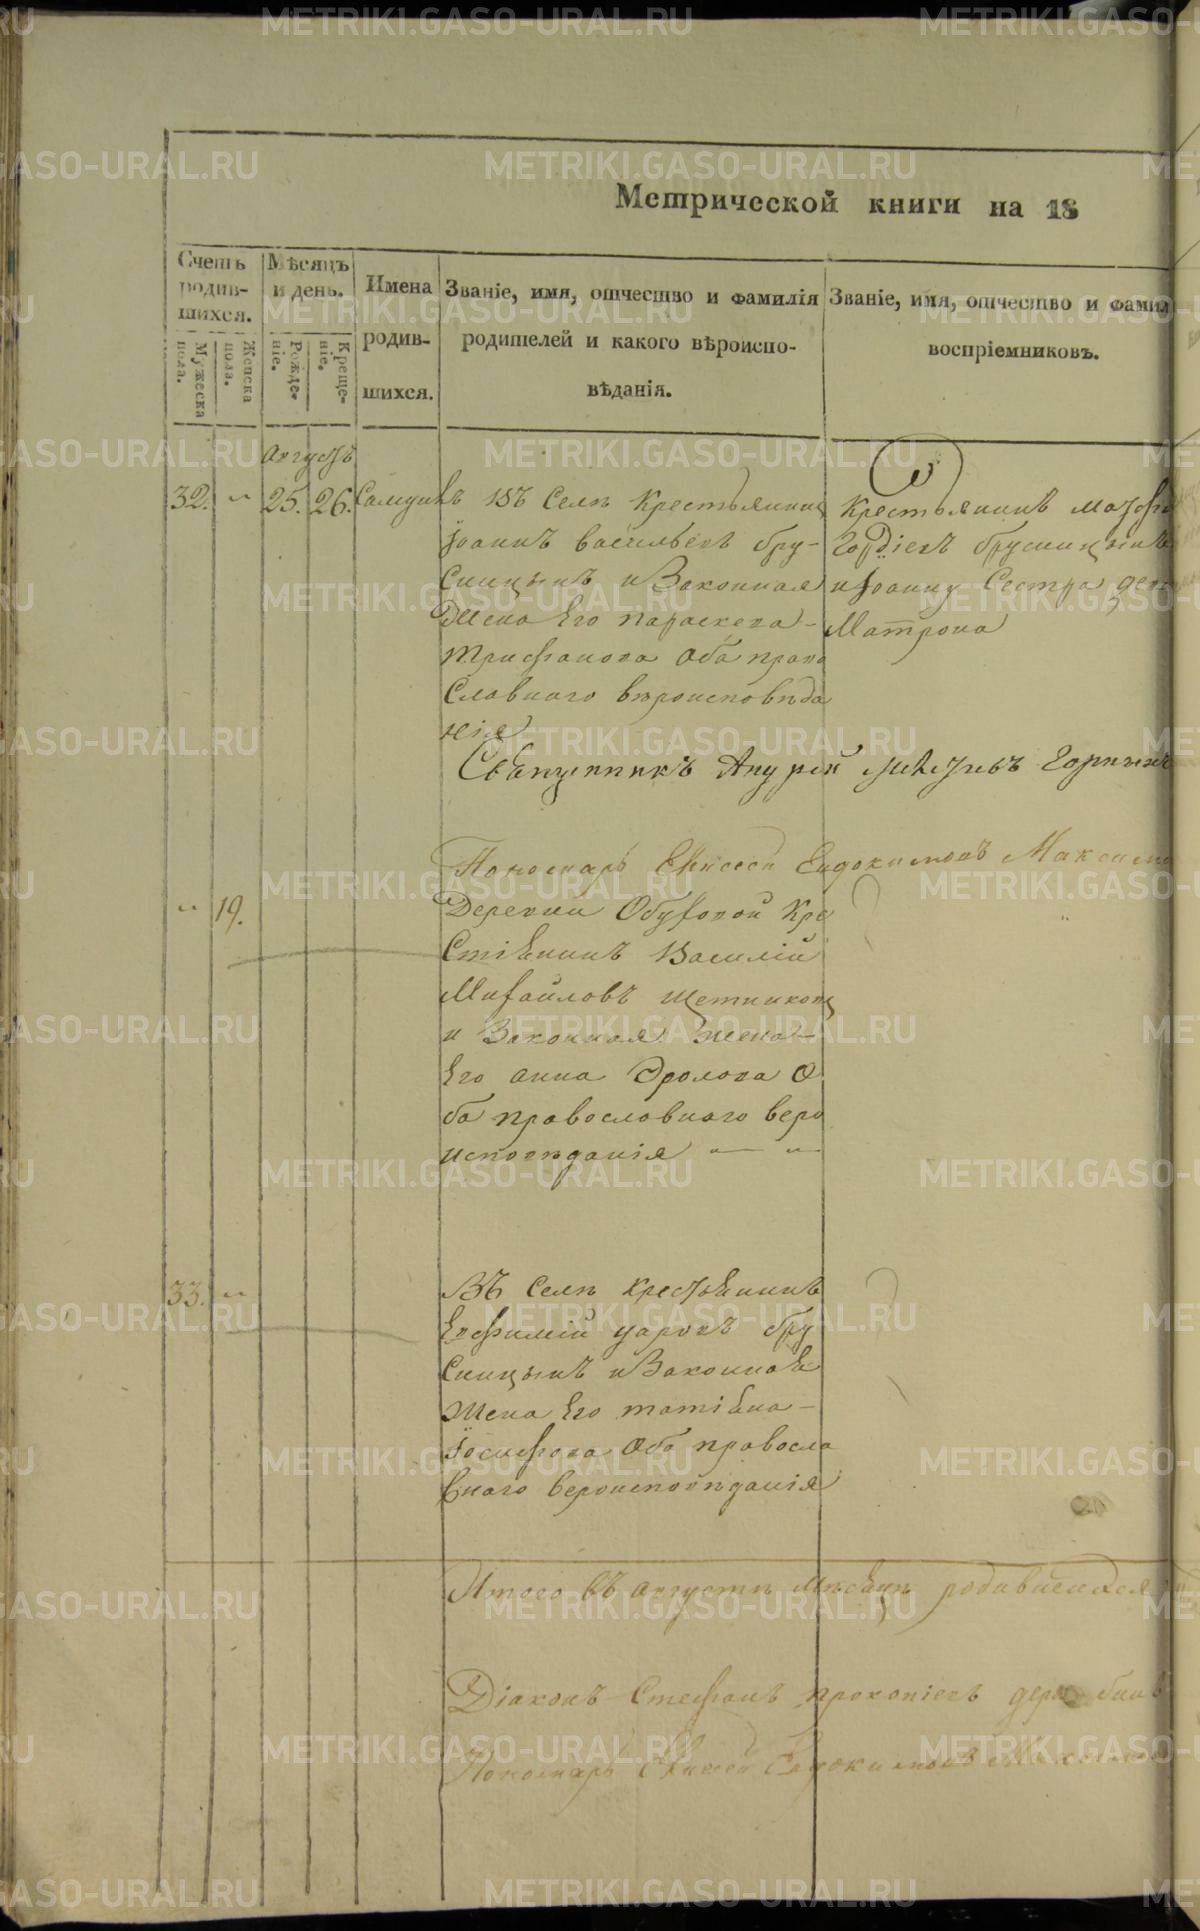 Метрической книги на 18
Счетъ родив-шихся.
Мужеска пола.
Женска пола.
Мѣсяцъ и день.
Рожде-ніе.
Креще-ніе.
Имена
родив-
шихся.
Званіе, имя, отчество и фамилія
родителей и какого вѣроиспо-
вѣданія.
Званіе, имя, отчество и фамил
воспріемниковъ.
Августъ
32. 25. 26. Самуилъ
Въ Селѣ Крестьянинъ
Іоаннъ васильевъ бру-
сницынъ и Законная
Жена Его параскева
Трифанова Оба право
Славнаго вѣроисповѣда
нія
Крестьянинъ
Гордіевъ брусницынъ
и Іоанну Сестра
Матрона
Священникъ Андрей
Пономарь Елисей Евдокимовъ Максимо
19.
Деревни Обуховой Кре
Стіянинъ Василій
Михайловъ щетниковъ
и Законная жена
Его анна Фролова О
ба православнаго веро
исповѣданія
33.
Въ Селѣ Крестьянинъ
Евфимій уаровъ бру
Сницынъ и Законная
Жена Его татіана
Іосифова Оба правосла
внаго вероисповѣданія
Итого въ августѣ мѣсяцѣ родившихся
Діаконъ Стефанъ прокопіевъ
Пономарь Елисей Евдокимовъ Максимов
METRIKI.GASO-URAL.RU